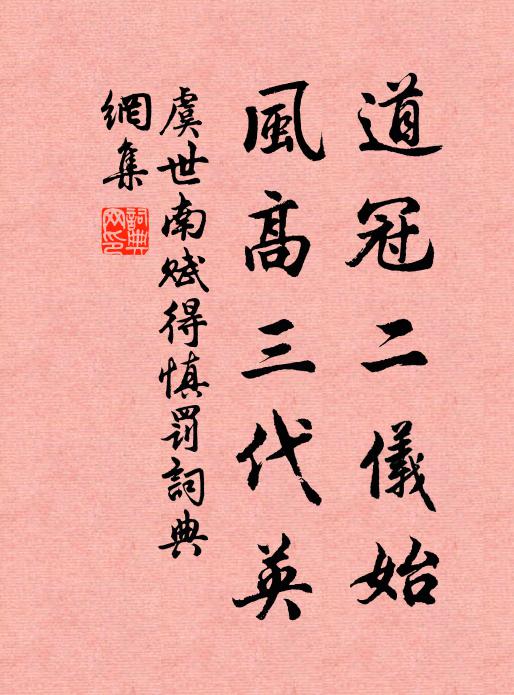 道冠二儀始
風高三代英
虞世南賦得慎罰詞典
網集
詞典
網印